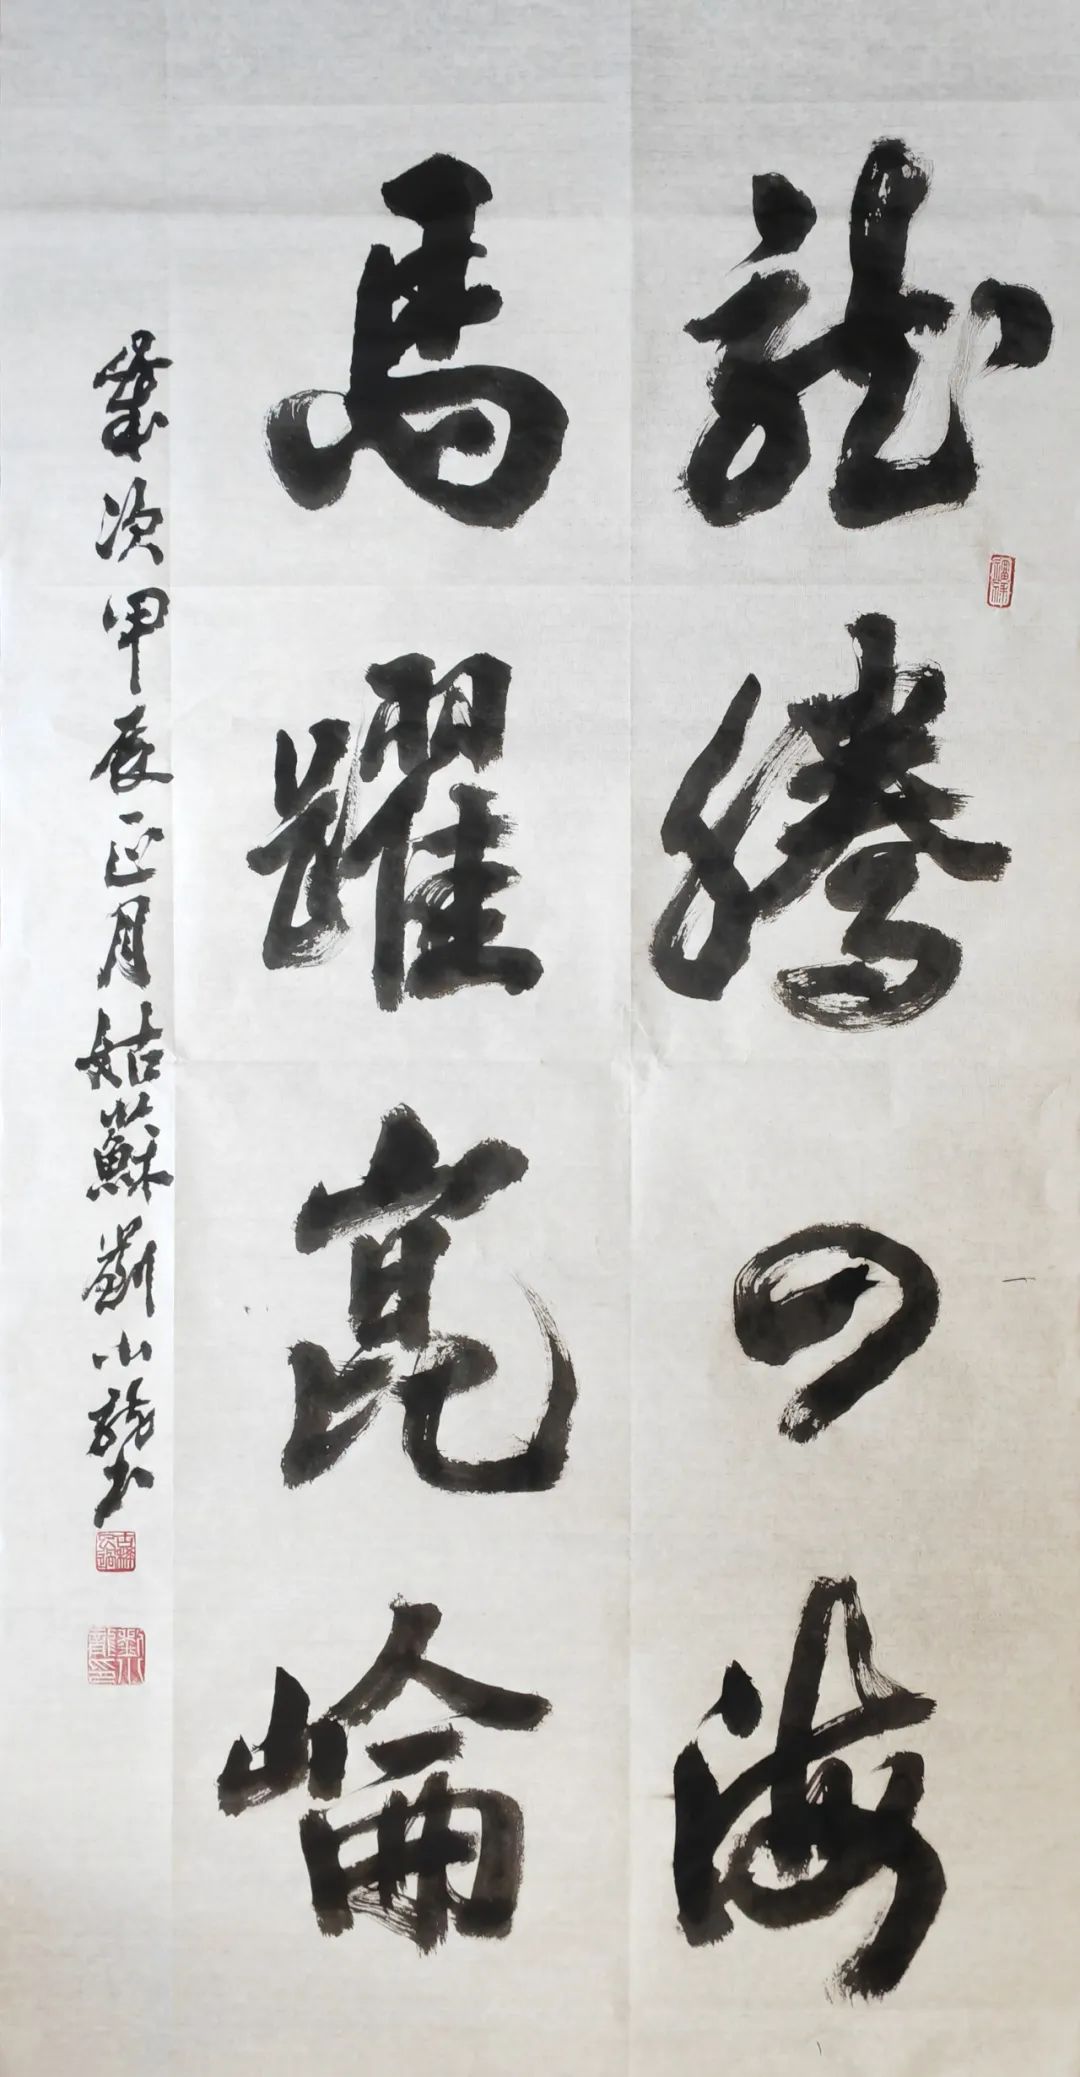 龍騰四海
馬躍崑崙
歲次甲辰正月姑蘇劉小龍書
劉小龍印